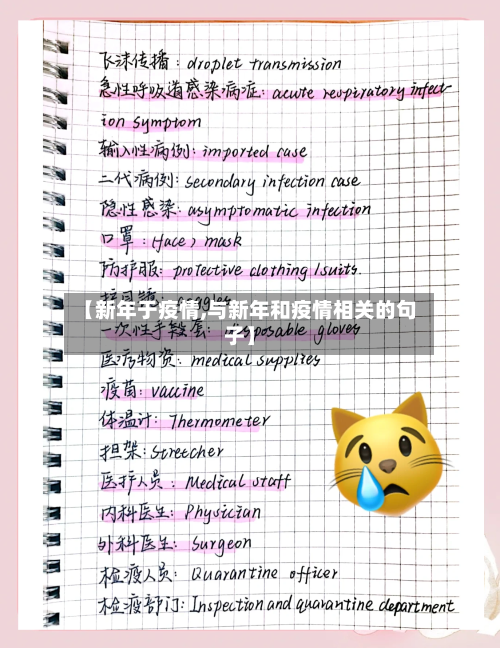 飞沫传播: droplet transmission
急性呼吸道感染病症: acute respiratory infect
ion symptom
输入性病例: imported case
二代病例: secondary infection case
隐性感染: asymptomatic infection
口罩: (face) mask
防护服: protective clothing / suits.
【新年于疫情,与新年和疫情相关的句
子】
一次性手套: disposable gloves
医疗物资: medical supplies
疫苗: vaccine
体温计: Thermometer
担架: Stretcher
医护人员: Medical staff
内科医生: Physician
外科医生: Surgeon
检疫人员: Quarantine officer
检疫部门: Inspection and quarantine department